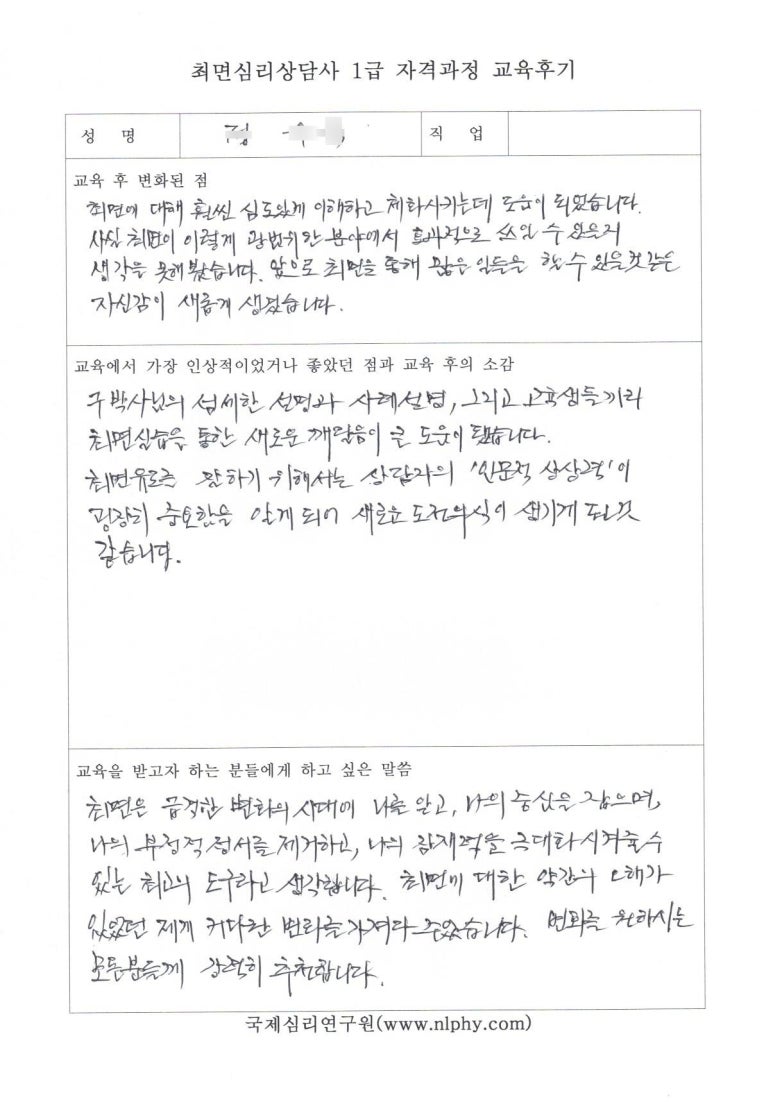 최면심리상담사 1급 자격과정 교육후기
성 명 정 직 업
교육 후 변화된 점
최면에 대해 훨씬 심도있게 이해하고 체화시키는데 도움이 되었습니다.
사실 최면이 이렇게 광범위한 분야에서 효과적으로 쓰일 수 있을지
생각을 못해봤습니다. 앞으로 최면을 통해 많은 일들을 할 수 있을것 같은
자신감이 새롭게 생겼습니다.
교육에서 가장 인상적이었거나 좋았던 점과 교육 후의 소감
구박사님의 섬세한 설명과 사례설명, 그리고 교육생들끼리
최면실습을 통한 새로운 깨달음이 큰 도움이 됐습니다.
최면유도를 잘하기 위해서는 상담자의 '인문적 상상력'이
굉장히 중요함을 알게 되어 새로운 도전의식이 생기게 된것
같습니다.
교육을 받고자 하는 분들에게 하고 싶은 말씀
최면은 급격한 변화의 시대에 나를 알고, 나의 중심을 잡으며,
나의 부정적 정서를 제거하고, 나의 잠재력을 극대화시켜줄 수
있는 최고의 도구라고 생각합니다. 최면에 대한 약간의 오해가
있었던 제게 커다란 변화를 가져다 주었습니다. 변화를 원하시는
모든분들께 강력히 추천합니다.
국제심리연구원(www.nlphy.com)